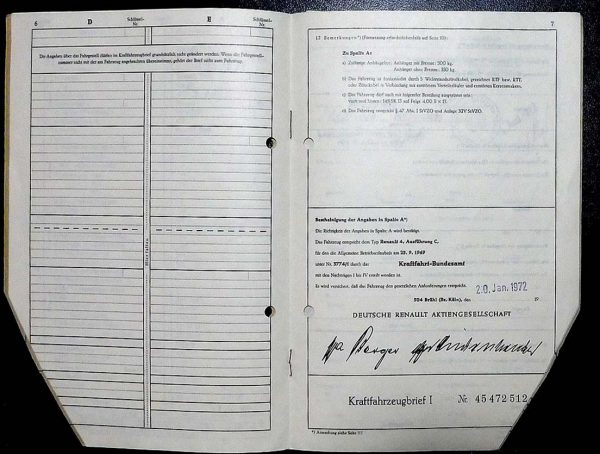 6 D Schlüssel-Nr. E Schlüssel-Nr.
Die Angaben über das Fahrgestell dürfen im Kraftfahrzeugbrief grundsätzlich nicht geändert werden. Wenn die Fahrgestell-
nummer nicht mit der am Fahrzeug angebrachten übereinstimmt, gehört der Brief nicht zum Fahrzeug.
7
Bemerkungen*) (Fortsetzung erforderlichenfalls auf Seite 10):
Zu Spalte A:
a) Zulässige Anhängelast: Anhänger mit Bremse: 500 kg.
Anhänger ohne Bremse:
b) Das Fahrzeug ist funkentstört durch
oder Zündkabel in Verbindung mit entstörtem Verteilerläufer und entstörten Kerzensteckern.
c) Das Fahrzeug darf auch mit folgender Bereifung ausgerüstet sein:
vorn und hinten: 145 SR 13 auf Felge 4,00 B x 13.
d) Das Fahrzeug entspricht § 47 Abs. 1 StVZO und Anlage XIV StVZO.
Bescheinigung der Angaben in Spalte A*)
Die Richtigkeit der Angaben in Spalte A wird bestätigt.
Das Fahrzeug entspricht dem Typ Renault 4, Ausführung C,
für den die Allgemeine Betriebserlaubnis am 1969
unter Nr. durch das Kraftfahrt-Bundesamt
mit den Nachträgen I bis IV erteilt worden ist.
Es wird versichert, daß das Fahrzeug den gesetzlichen Anforderungen entspricht.
20. Jan. 1972
504 Brühl (Bz. Köln), den 19
DEUTSCHE RENAULT AKTIENGESELLSCHAFT
Kraftfahrzeugbrief I Nr. 45 472 512
*) Anmerkung siehe Seite